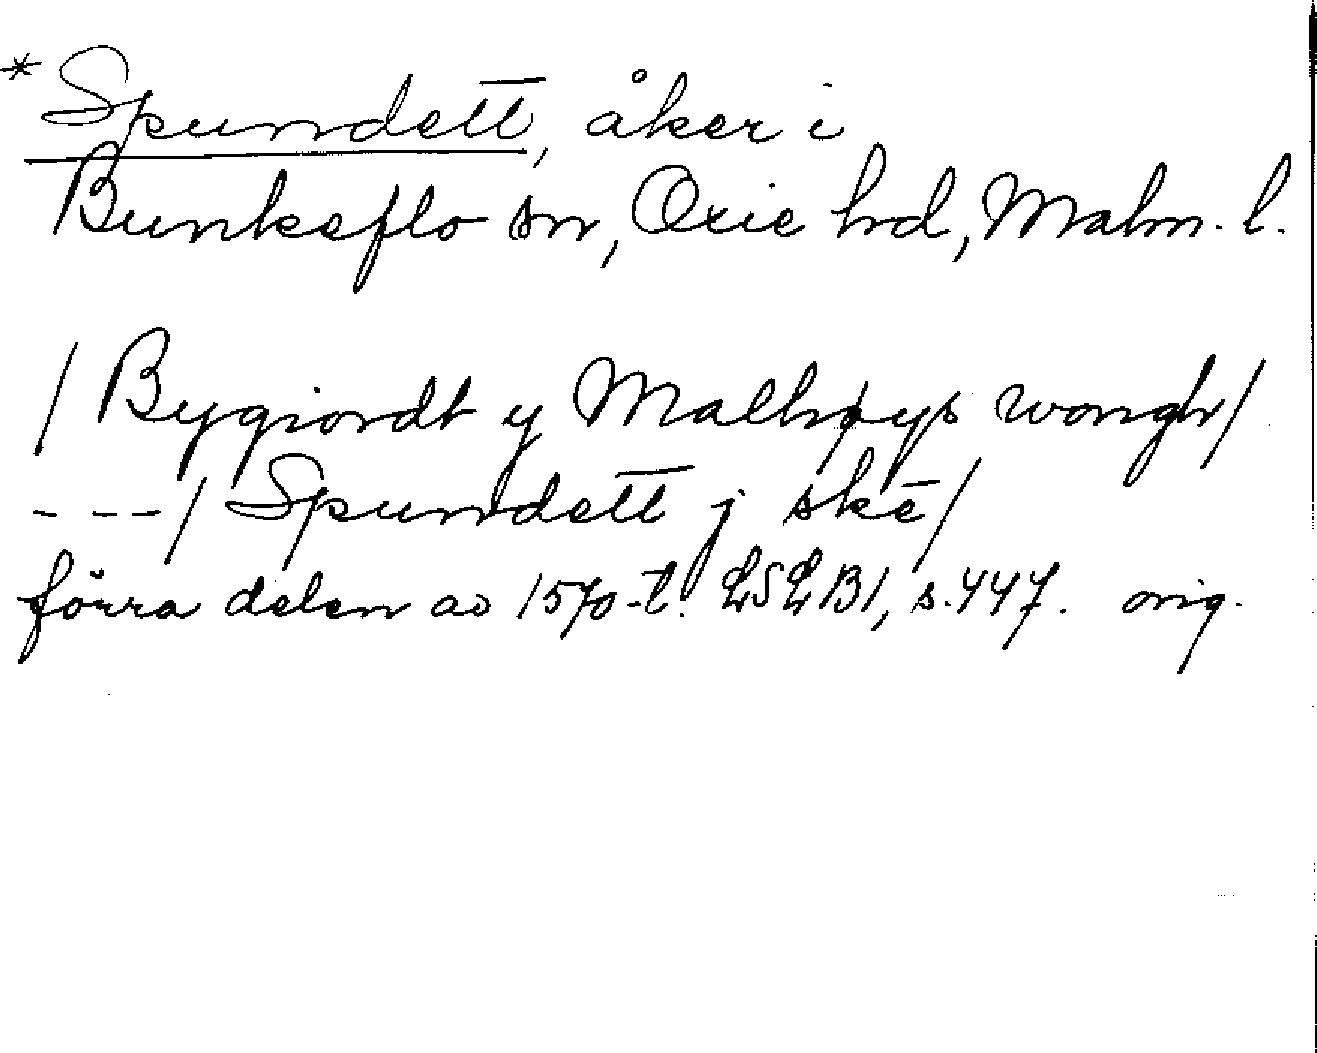 *Spundett, åker i
Bunkeflo sn, Oxie hd, Malm. l.
/ Bygiordt y Malhøys wongh/
---/ Spundett j skē/
förra delen av 1570-t. LSLB1, s. 447. orig.